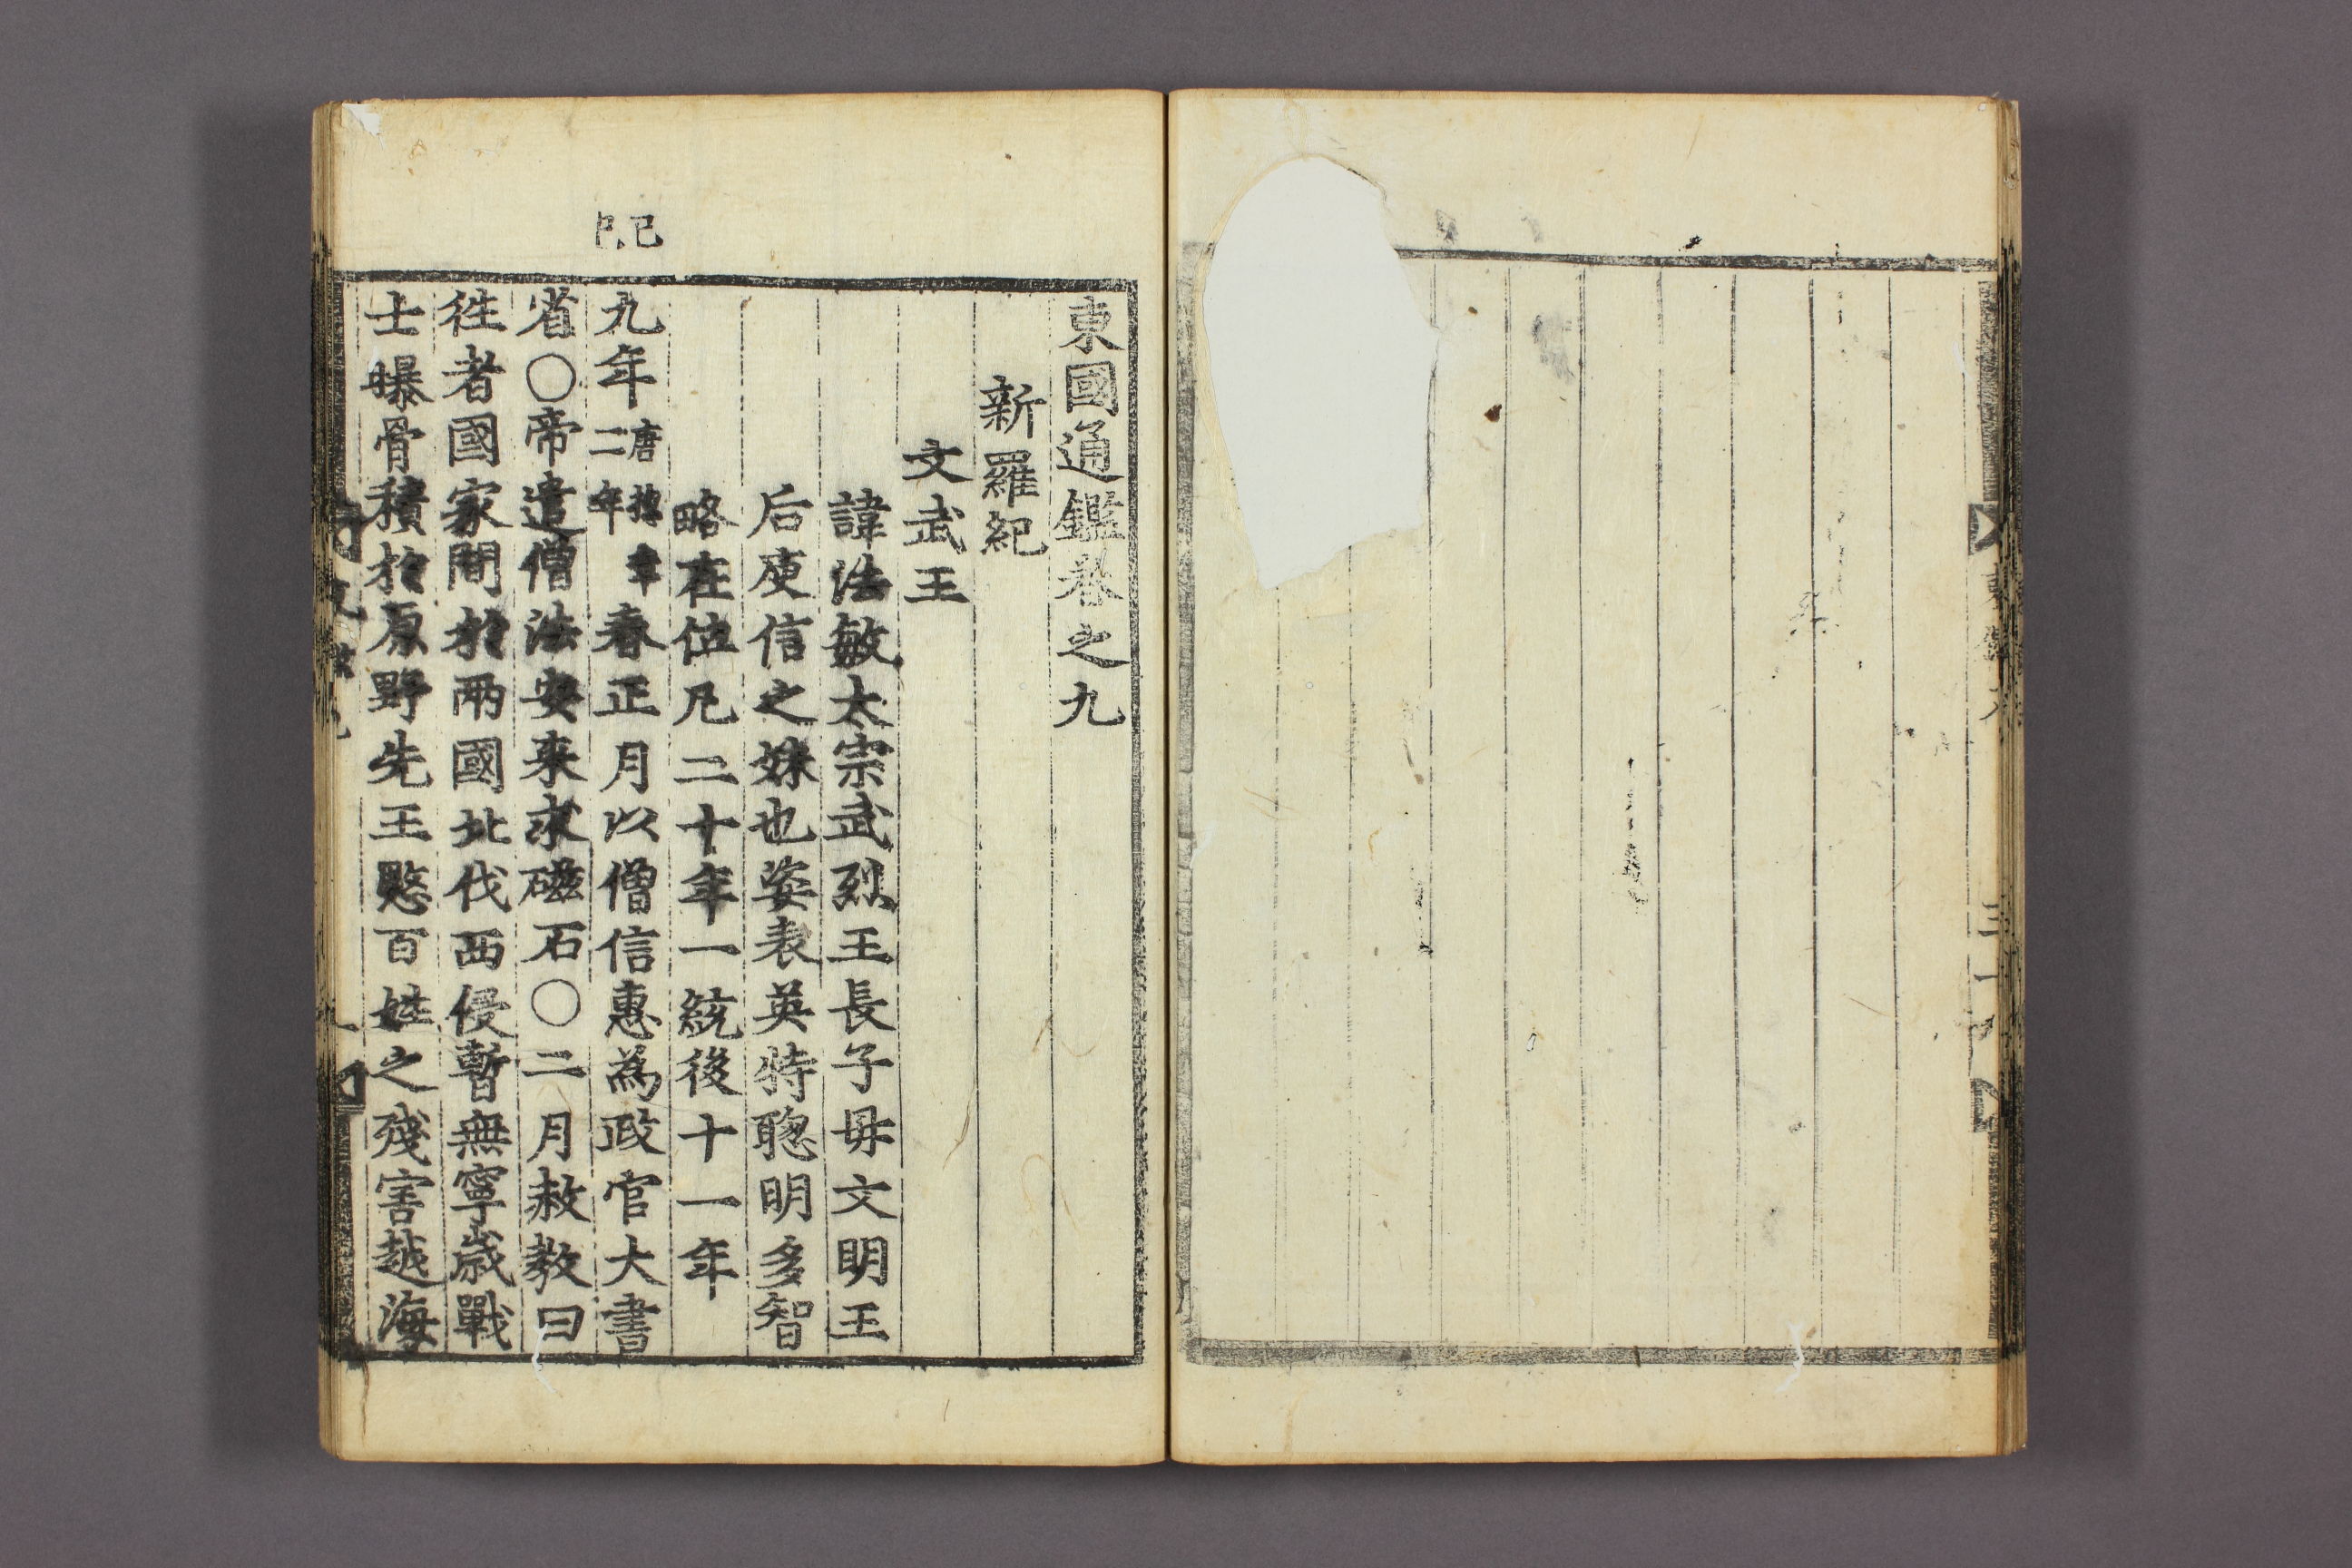 東國通鑑卷之九
新羅紀
文武王
諱法敏太宗武烈王長子毋文明王
后庾信之妹也姿表英特聦明多智
略在位凡二十年一統後十一年
己巳
九年唐摠章二年春正月以僧信惠為政官大書
省〇帝遣僧法安来求磁石〇二月赦教曰
徃者國家間於兩國北伐西侵暫無寧歲戰
士曝骨積於原野先王愍百姓之殘害越海